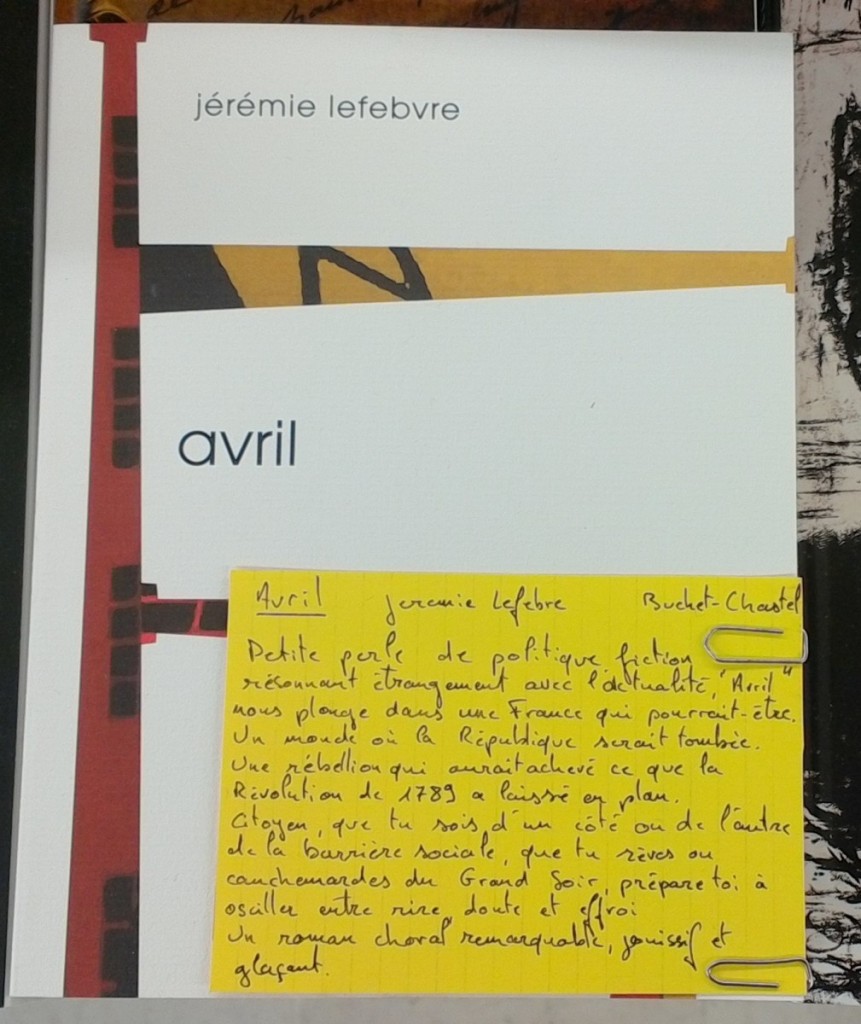 jérémie lefebvre
avril
Avril Jeremie Lefebre Buchet-Chastel
Petite perle de politique fiction
résonnant étrangement avec l'actualité, "Avril"
nous plonge dans une France qui pourrait-être.
Un monde où la République serait tombée.
Une rébellion qui aurait achevé ce que la
Révolution de 1789 a laissé en plan.
Citoyen, que tu sois d'un côté ou de l'autre
de la barrière sociale, que tu rêves ou
cauchemardes du Grand Soir, prépare toi à
osciller entre rire, doute et effroi
Un roman choral remarquable, jouissif et
glaçant.